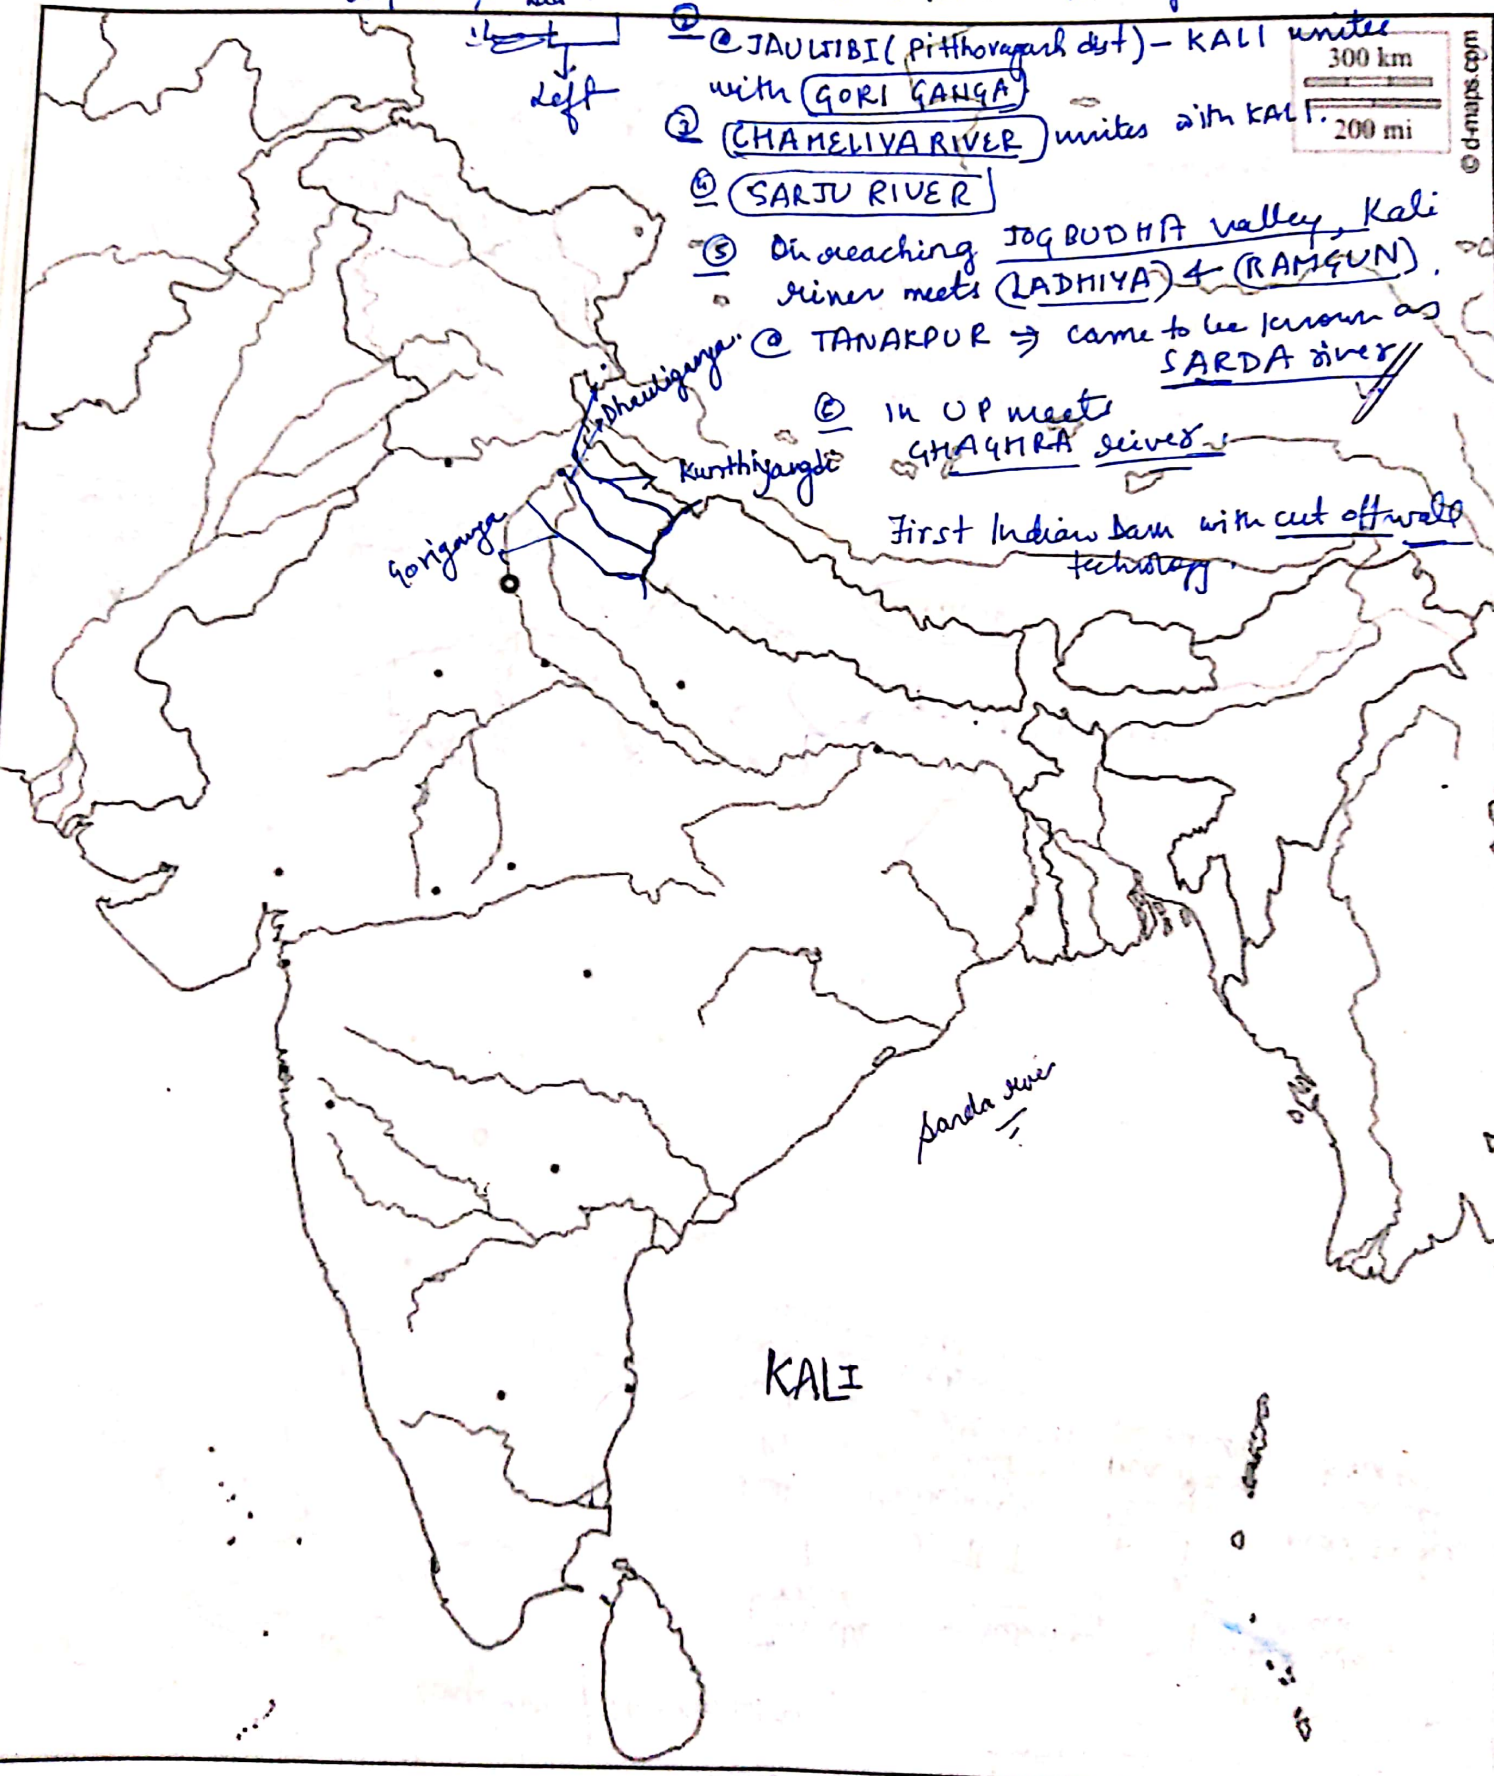 Left
② @ JAULJIBI (Pitthoragarh dist) – KALI unites
with GORI GANGA
③ CHAMELIYA RIVER unites with KALI.
④ SARJU RIVER
⑤ On reaching JOGBUDHA valley, Kali
river meets (LADHIYA) & (RAMGUN).
@ TANAKPUR ⇒ came to be known as
SARDA river
⑥ in UP meets
GHAGHRA river
First Indian Dam with cut off wall
technology.
300 km
200 mi
© d-maps.com
Dhauliganga
Kunthiyangdi
Goriganga
Sarda river
KALI